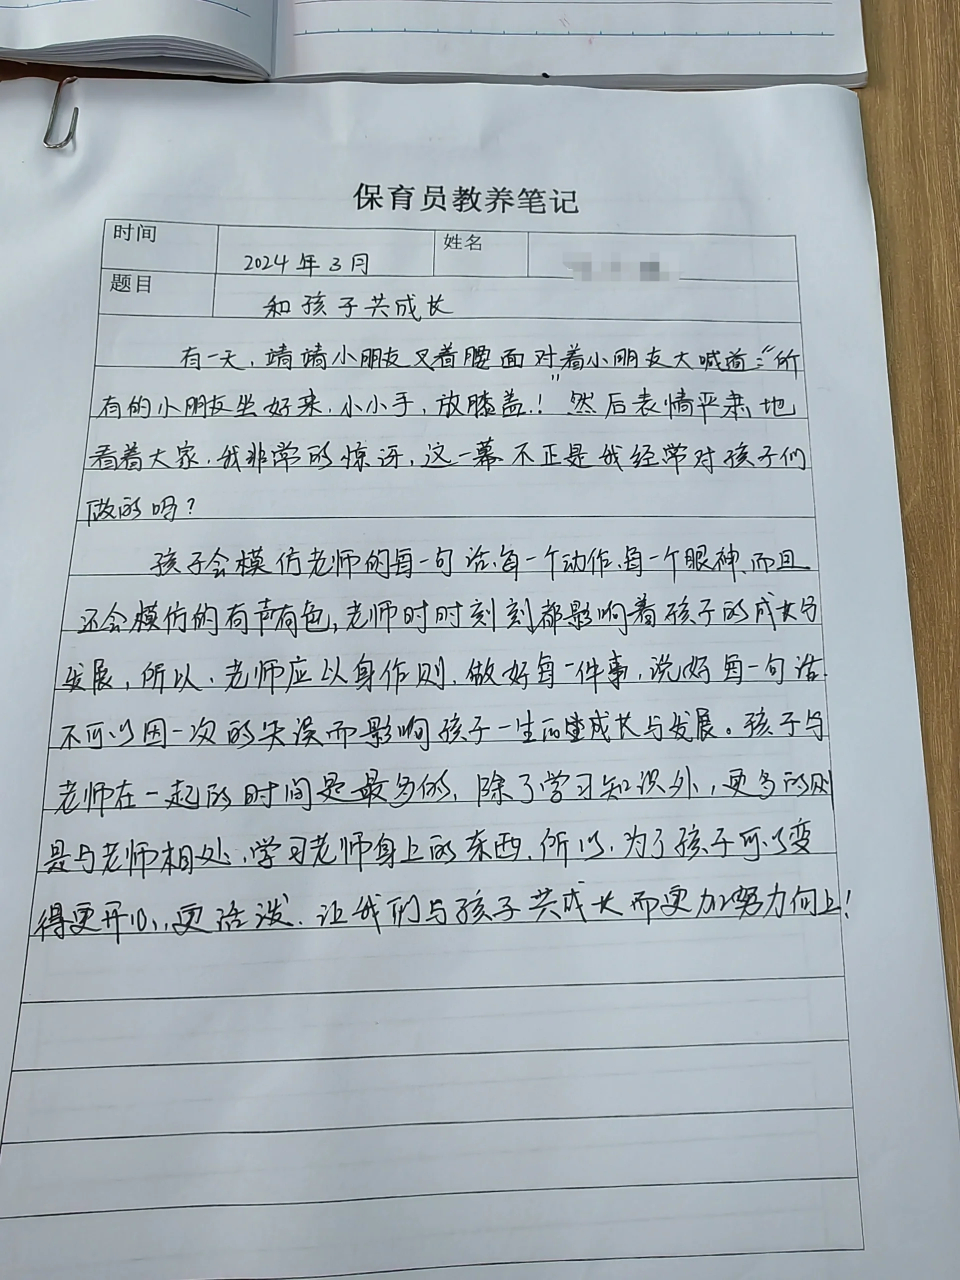 保育员教养笔记
时间 2024年3月 姓名
题目 和孩子共成长
有一天，靖靖小朋友叉着腰面对着小朋友大喊道："所
有的小朋友坐好来，小小手，放膝盖！"然后表情严肃地
看着大家，我非常的惊讶，这一幕不正是我经常对孩子们
做的吗？
孩子会模仿老师的每一句话、每一个动作、每一个眼神、而且
还会模仿的有声有色，老师时时刻刻都影响着孩子的成长与
发展，所以，老师应以身作则，做好每一件事，说好每一句话
不可以因一次的失误而影响孩子一生的成长与发展。孩子与
老师在一起的时间是最多的，除了学习知识外，更多的则
是与老师相处，学习老师身上的东西，所以，为了孩子可以变
得更开心，更活泼，让我们与孩子共成长而更加努力向上！